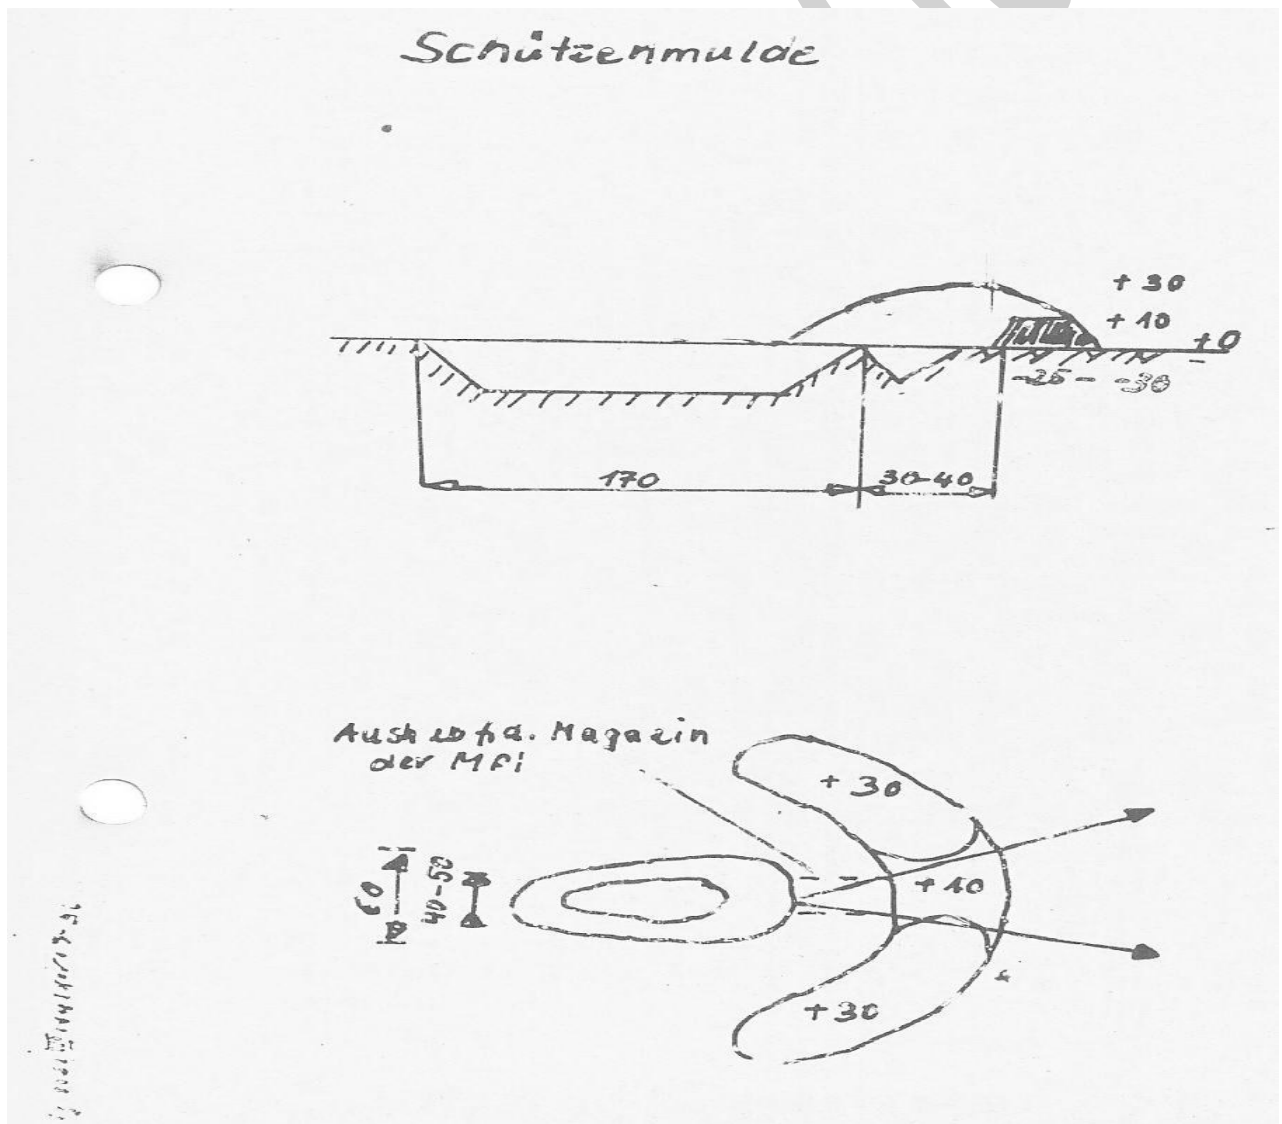 Schützenmulde
+ 30
+ 10
+0
-25- -30
170
30-40
Aushub f.d. Magazin
der MPi
+ 30
60
40-50
+ 10
+ 30